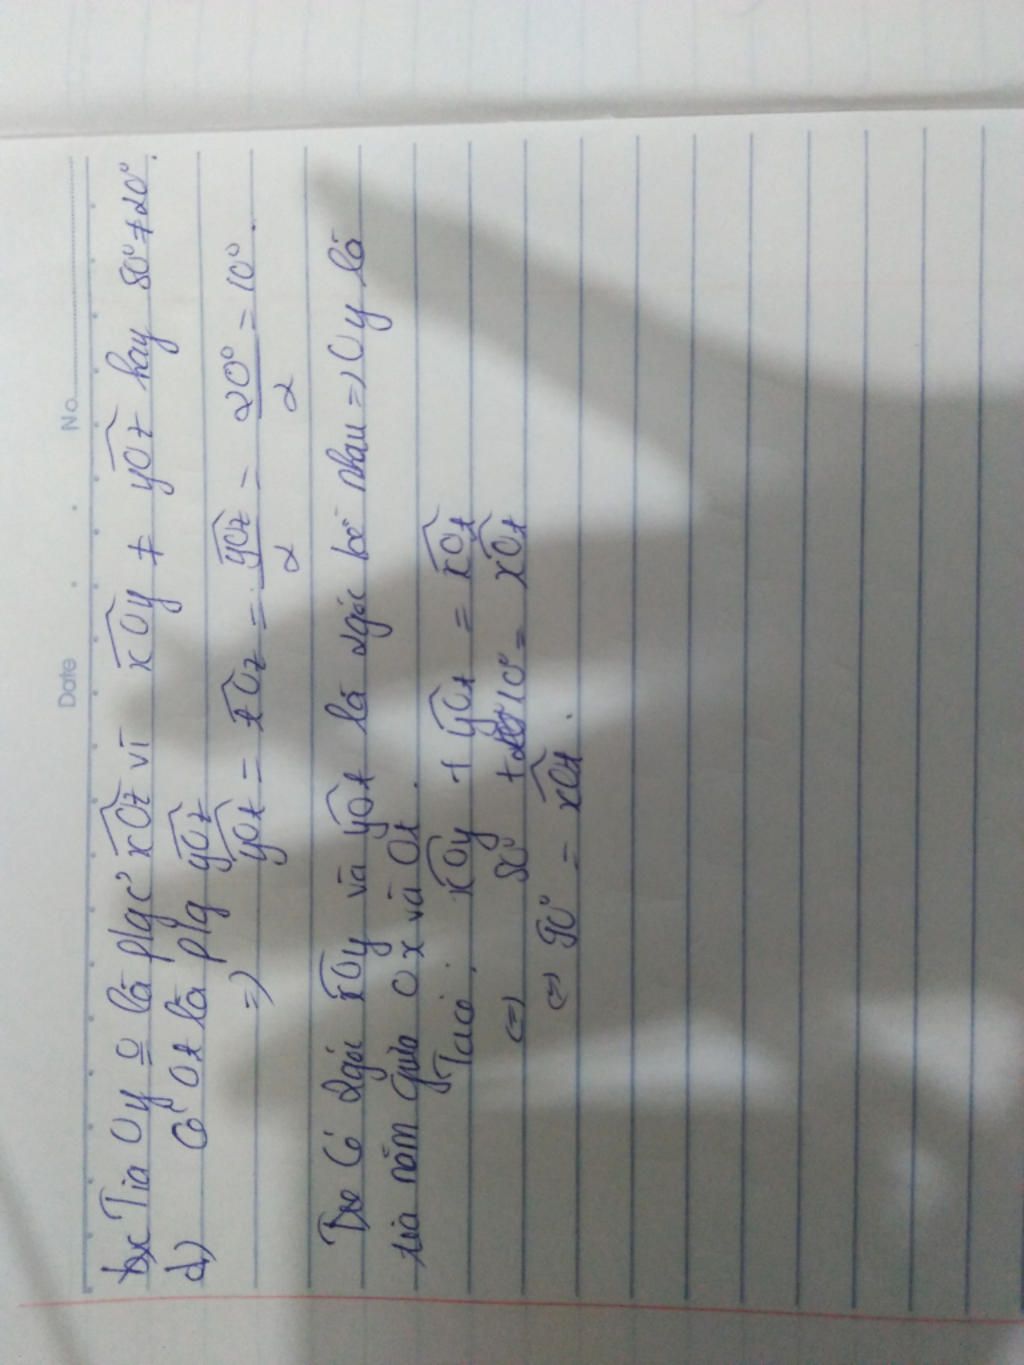 Date No
c Tia Oy o là plgc' xOz vì xOy ≠ yOz hay 80° ≠ 20°.
d) Có Ot là plg yOz
=> yOt = tOz = yOz/2 = 20°/2 = 10°.
Có 2góc xOy và yOt là 2góc kề nhau => Oy là
tia nằm giữa Ox và Ot.
Ta có: xOy + yOt = xOt
<=> 80° + 10° = xOt
<=> 90° = xOt.